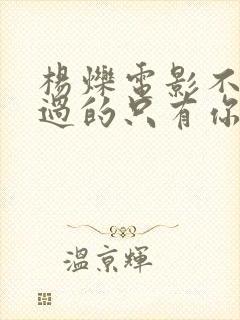 楊爍電影不
過的只有你
溫京輝